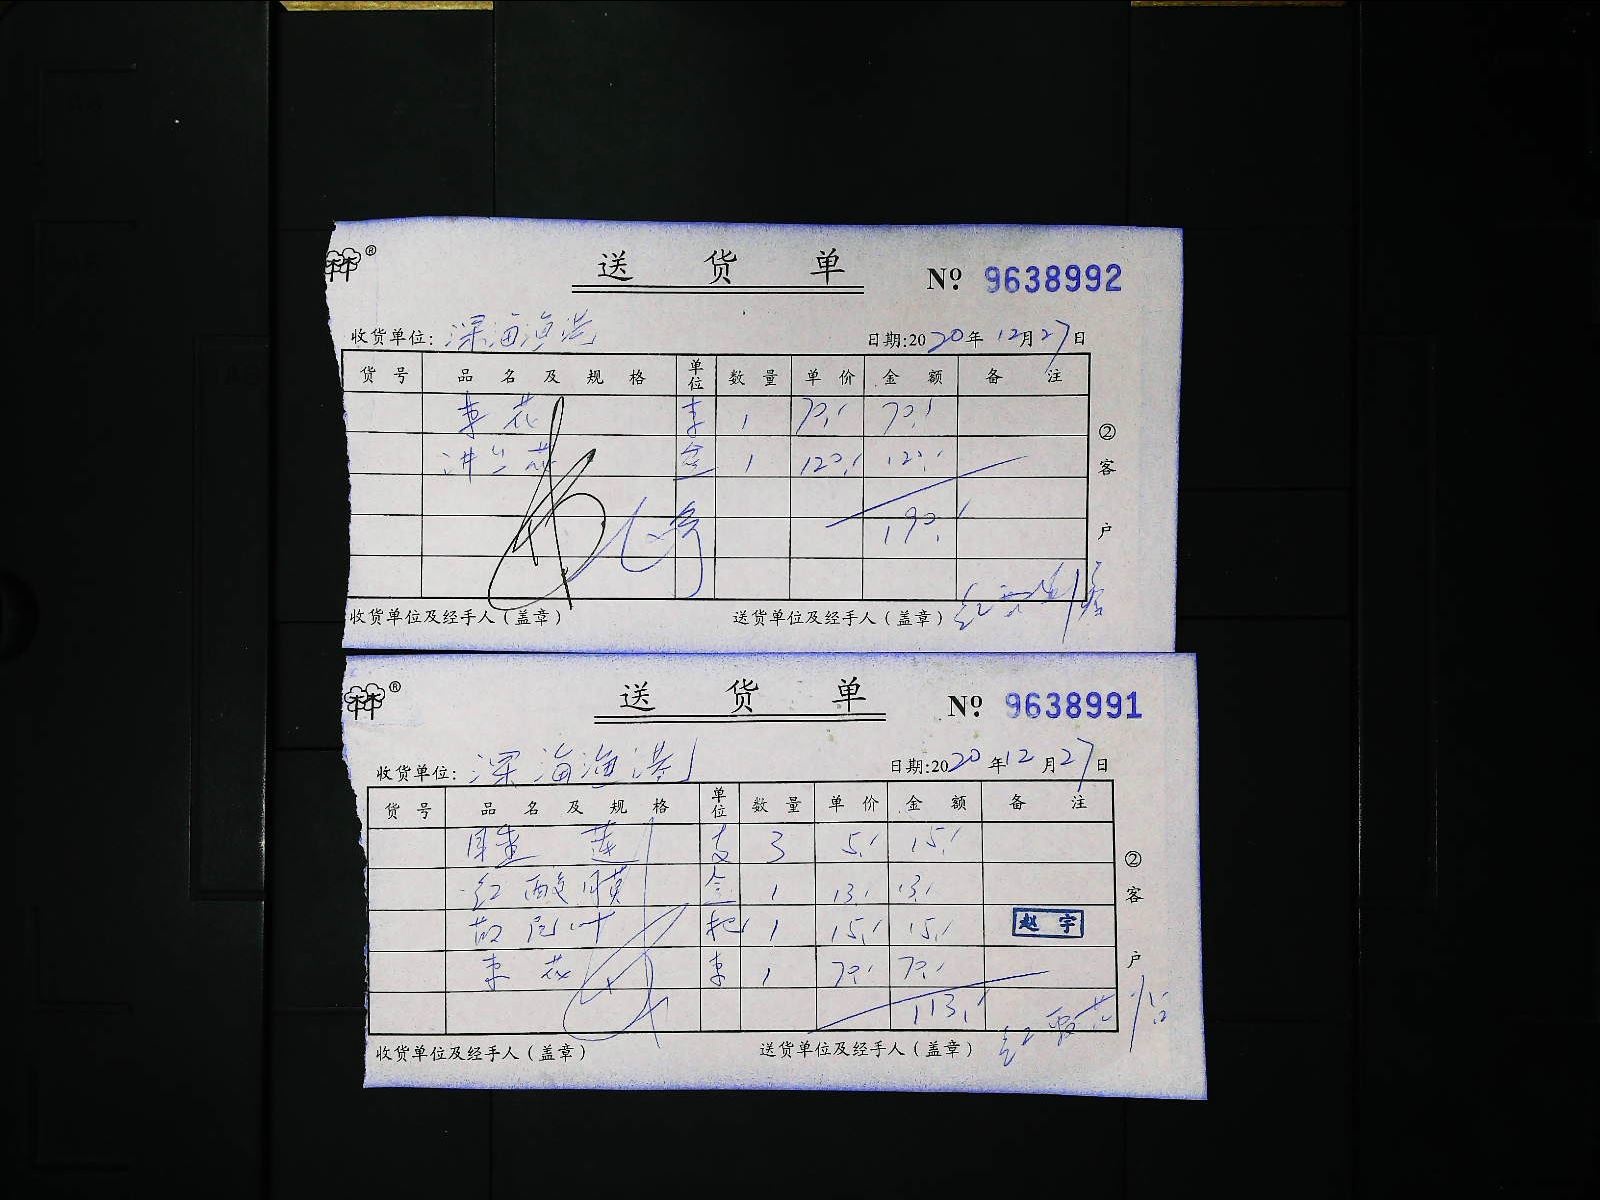 ®
送货单 № 9638992
收货单位: 深海渔港 日期:2020年12月27日
货号 品名及规格 单位 数量 单价 金额 备注
束花 束 1 70 70
洋兰花 盆 1 120 120
190
② 客户
收货单位及经手人(盖章) 送货单位及经手人(盖章)
®
送货单 № 9638991
收货单位: 深海渔港 日期:2020年12月27日
货号 品名及规格 单位 数量 单价 金额 备注
睡莲 支 3 5 15
红酸膜 1 13 13
叶 把 1 15 15 赵宇
束花 束 1 70 70
113
② 客户
收货单位及经手人(盖章) 送货单位及经手人(盖章)